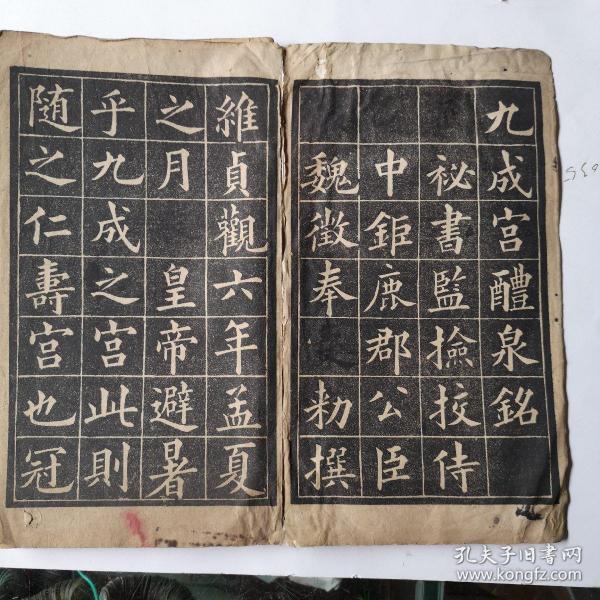 九成宫醴泉銘
祕書監撿挍侍
中鉅鹿郡公臣
魏徵奉敕撰
維貞觀六年孟夏
之月皇帝避暑
乎九成之宫此則
随之仁壽宫也冠
孔夫子旧书网
www.kongfz.com